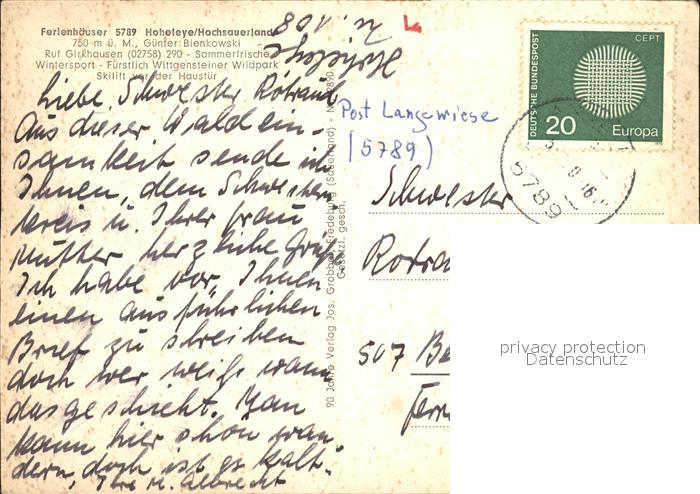 Ferienhäuser 5789 Hoheleye/Hochsauerland
750 m ü. M., Günter Bienkowski
Ruf Girkhausen (02758) 290 - Sommerfrische
Wintersport - Fürstlich Wittgensteiner Wildpark
Skilift vor der Haustür
Liebe Schwester Rotraud
Aus dieser Waldein-
samkeit sende ich
Ihnen, dem Schwestern
kreis u. Ihrer Frau
Mutter herzliche Grüße
Ich habe vor, Ihnen
einen ausführlichen
Brief zu schreiben
doch wer weiß wann
das geschieht. Man
kann hier schön wan
dern, doch ist es kalt.
Ihre M. Albrecht
90 Jahre Verlag Jos. Grobbel, Fredeburg (Sauerland)
Gesetzl. gesch.
Post Langewiese
(5789)
DEUTSCHE BUNDESPOST
CEPT
20 Europa
5789
Schwester
Rotra
507 Be
Fern
privacy protection
Datenschutz